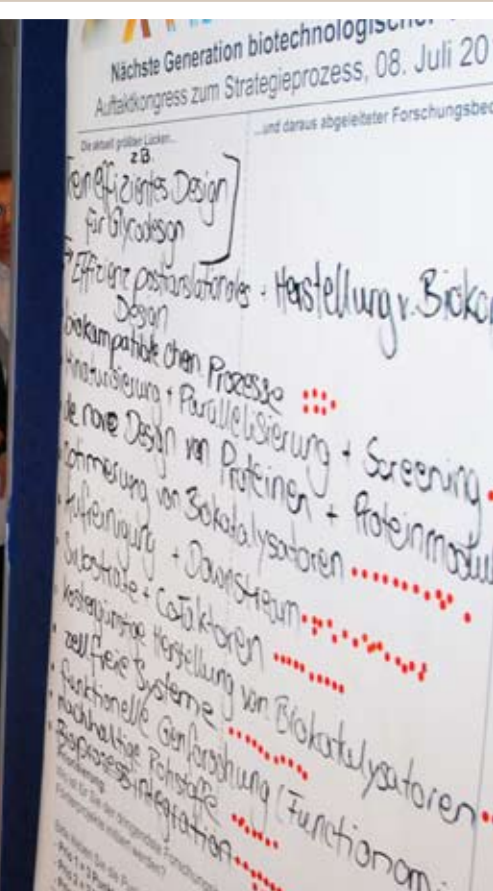 Nächste Generation biotechnologischer
Auftaktkongress zum Strategieprozess, 08. Juli 20
Die aktuell größten Lücken...
...und daraus abgeleiteter Forschungsbed
z.B.
effizientes Design
für Glycodesign
Effizienz posttranslationales · Herstellung v. Bioka
Design
biokompatible chem. Prozesse
Parallelisierung + Screening
de novo Design von Proteinen + Proteinmodul
von Biokatalysatoren
Aufreinigung + Downstream
Substrate + Cofaktoren
kostengünstige Herstellung von Biokatalysatoren
zellfreie Systeme
funktionelle Genforschung (Functionom
nachhaltige Rohstoffe
Bioprozessintegration